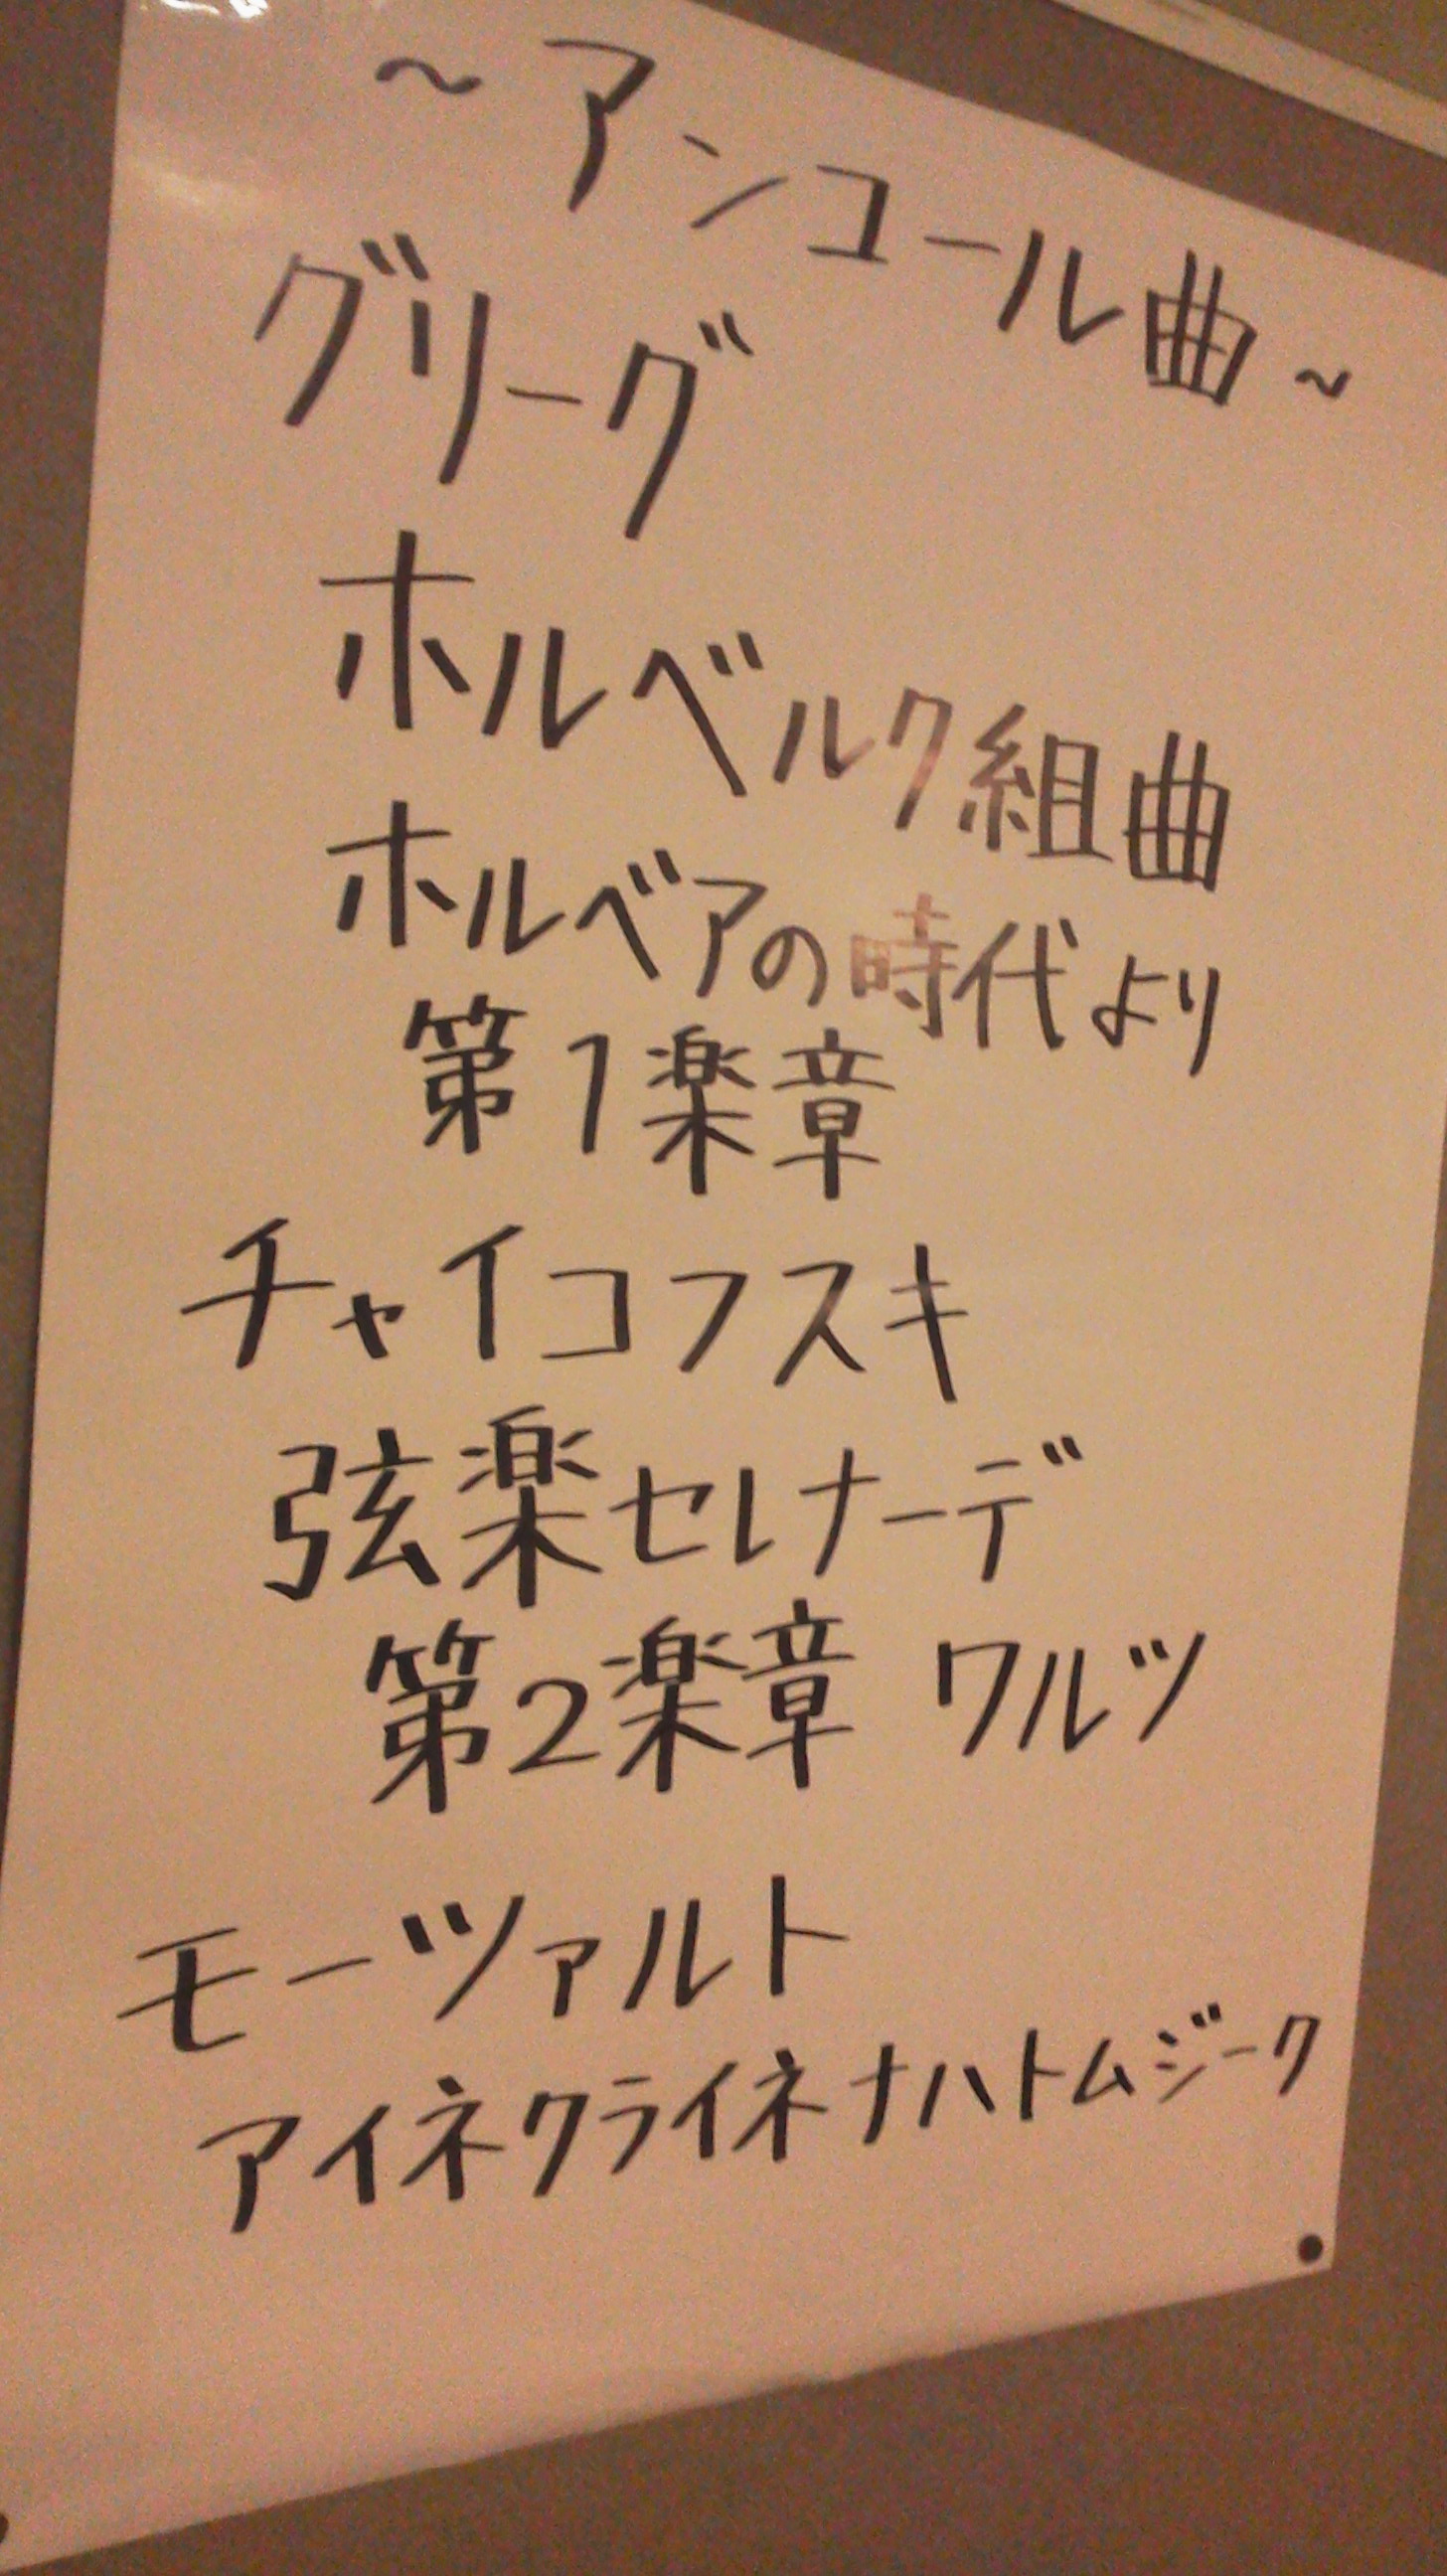 ～アンコール曲～
グリーグ
ホルベルク組曲
ホルベアの時代より
第1楽章
チャイコフスキ
弦楽セレナーデ
第2楽章 ワルツ
モーツァルト
アイネクライネナハトムジーク